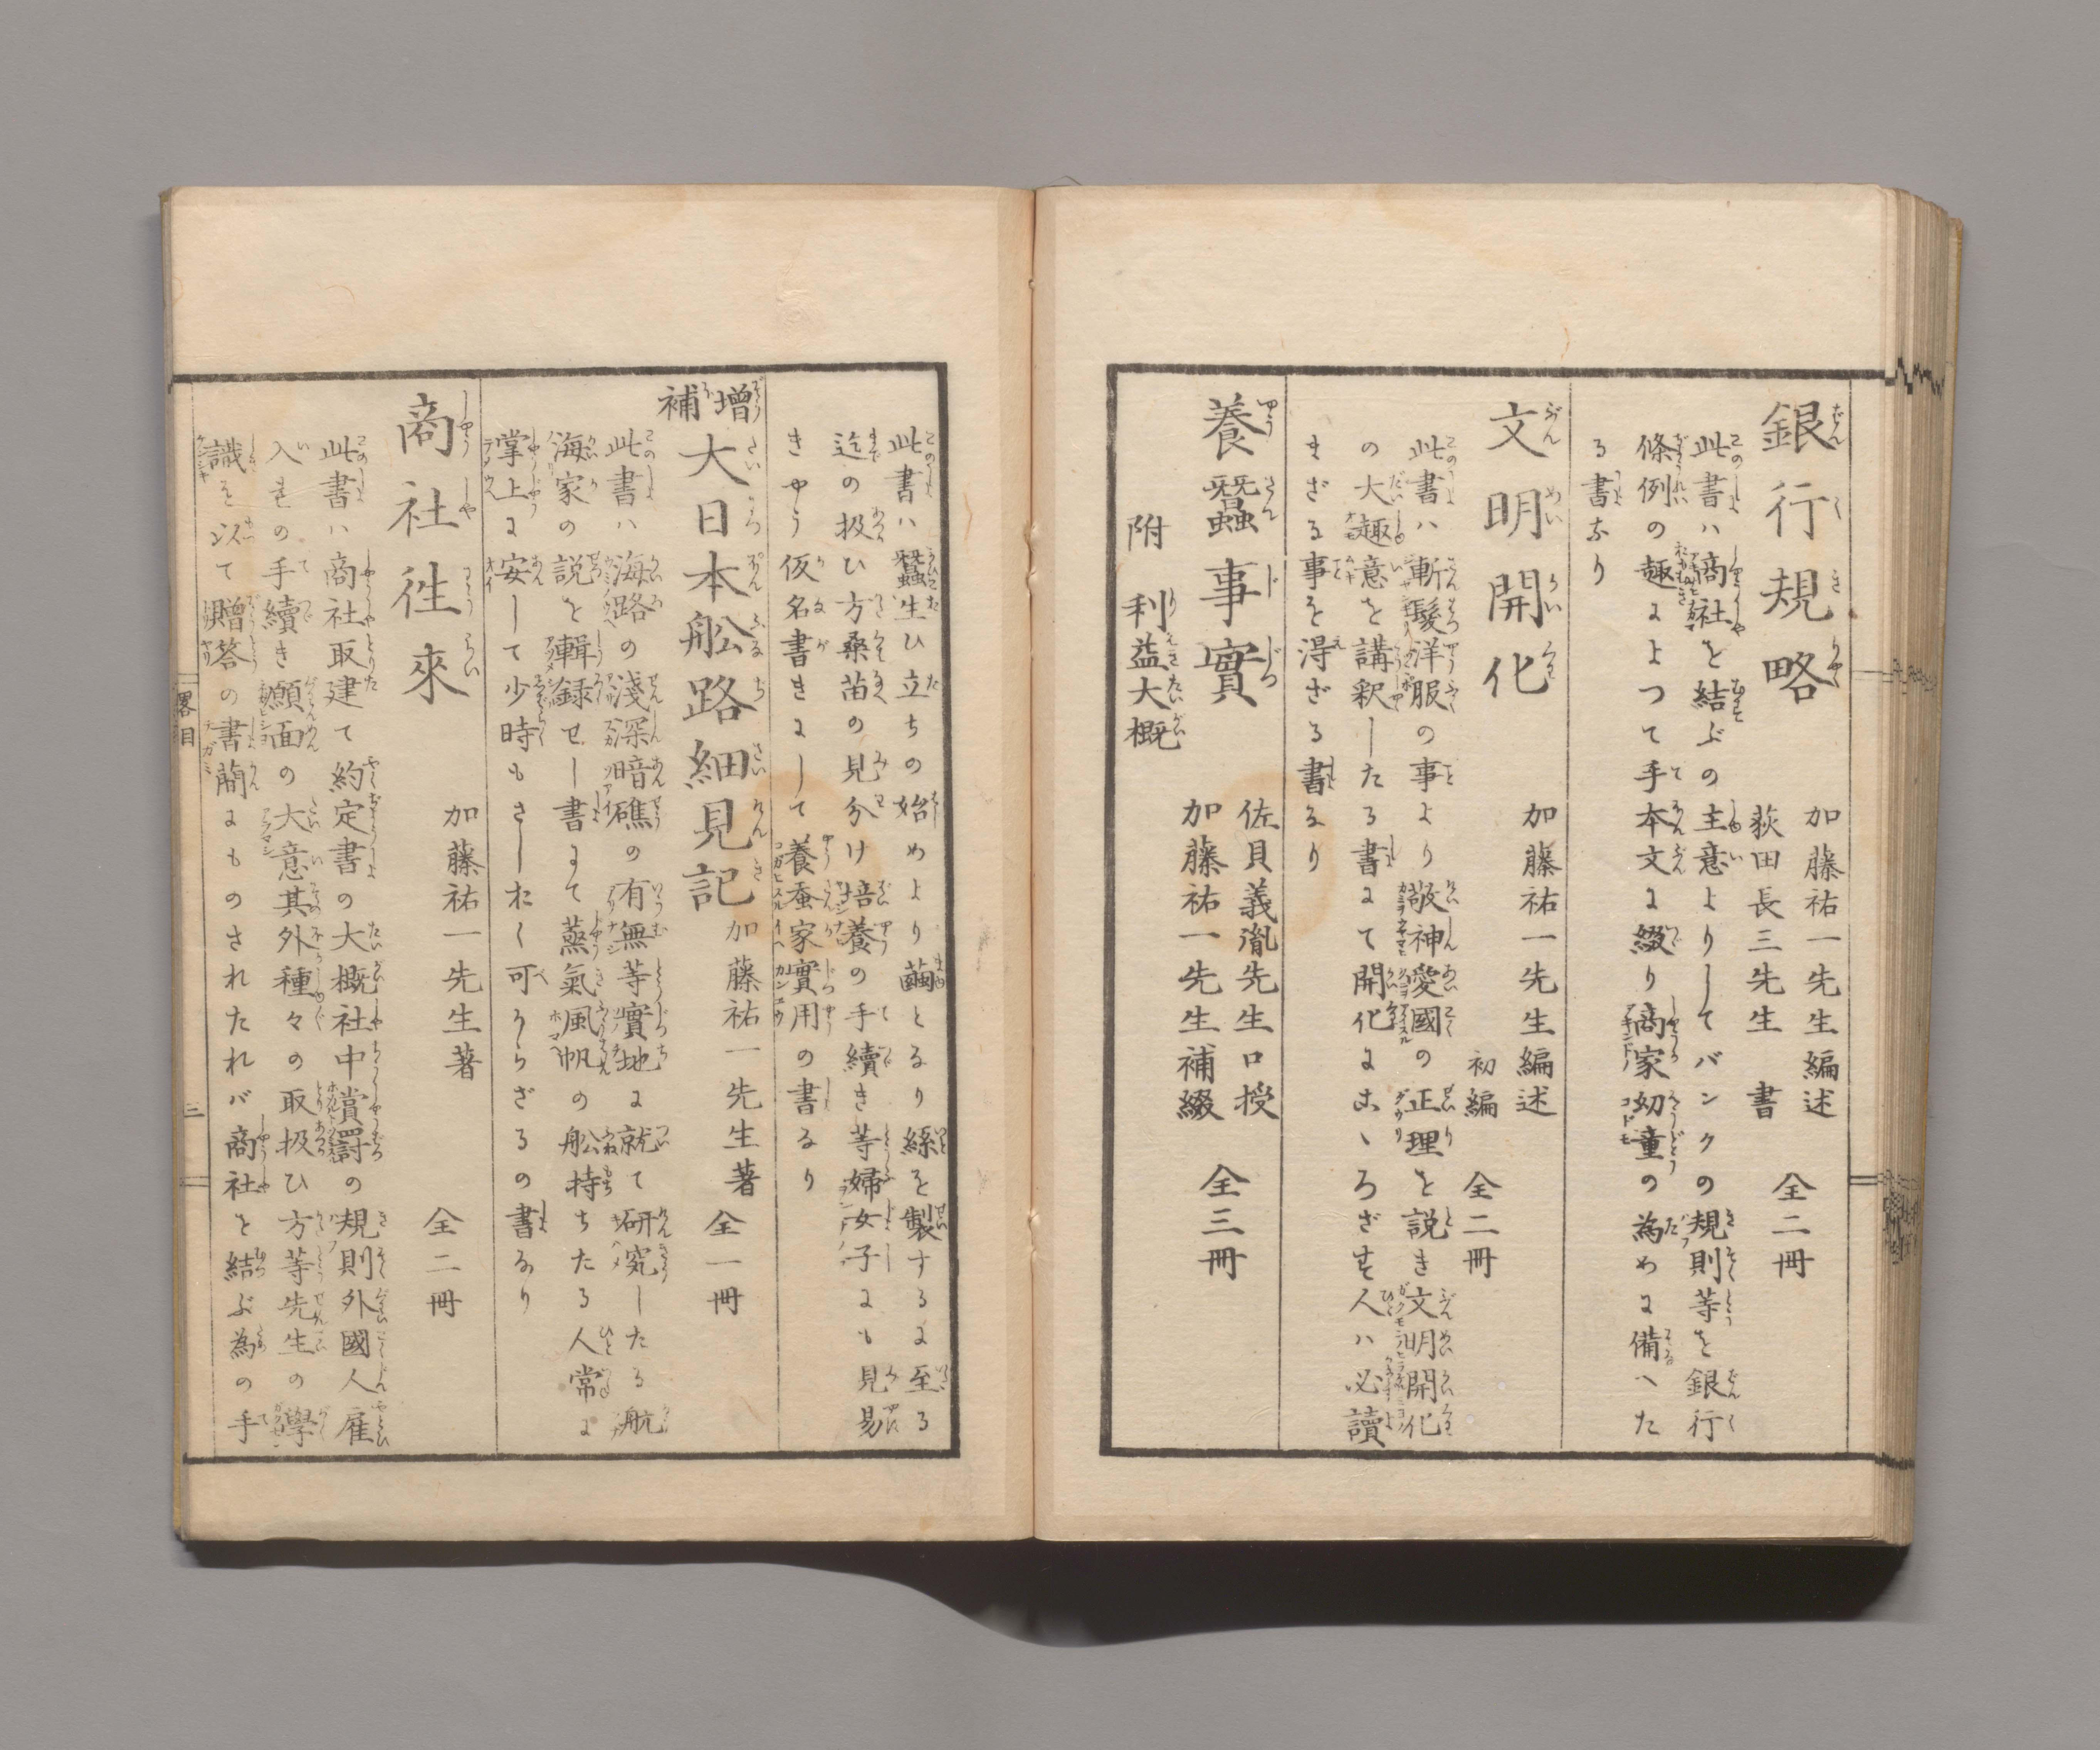 銀行規略
加藤祐一先生編述
荻田長三先生 書
全二冊
此書ハ商社を結ぶの主意よりしてバンクの規則等を銀行
條例の趣によつて手本文に綴り商家幼童の為めに備へた
る書なり
文明開化
加藤祐一先生編述
初編
全二冊
此書ハ斬髪洋服の事より敬神愛國の正理を説き文明開化
の大趣意を講釈したる書にて開化にこゝろざす人ハ必讀
まざる事を得ざる書なり
養蠶事實
佐貝義胤先生口授
加藤祐一先生補綴
全三冊
附 利益大概
此書ハ蠶生ひ立ちの始めより繭となり絲を製するに至る
迄の扱ひ方桑苗の見分け培養の手續き等婦女子にも見易
きやう仮名書きにして養蚕家實用の書なり
増補
大日本舩路細見記
加藤祐一先生著
全一冊
此書ハ海路の淺深暗礁の有無等實地に就て研究したる航
海家の説を輯録せし書にて蒸氣風帆の舩持ちたる人常に
掌上に安して少時もさしおく可からざるの書なり
商社徃來
加藤祐一先生著
全二冊
此書ハ商社取建て約定書の大概社中賞罸の規則外國人雇
入まの手續き願面の大意其外種々の取扱ひ方等先生の學
識を以て贈答の書簡にものされたれバ商社を結ぶ為の手
畧目
三